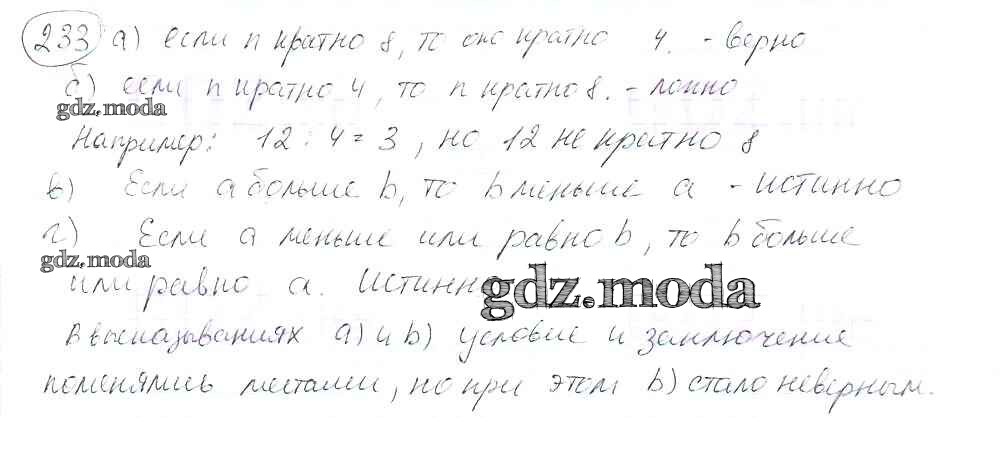 233 а) если n кратно 8, то оно кратно 4. - верно
б) если n кратно 4, то n кратно 8. - ложно
gdz.moda
Например: 12 : 4 = 3, но 12 не кратно 8
в) Если a больше b, то b меньше a - истинно
г) Если a меньше или равно b, то b больше
gdz.moda
или равно a. Истинн
gdz.moda
В высказываниях а) и b) условие и заключение
поменялись местами, но при этом b) стало неверным.